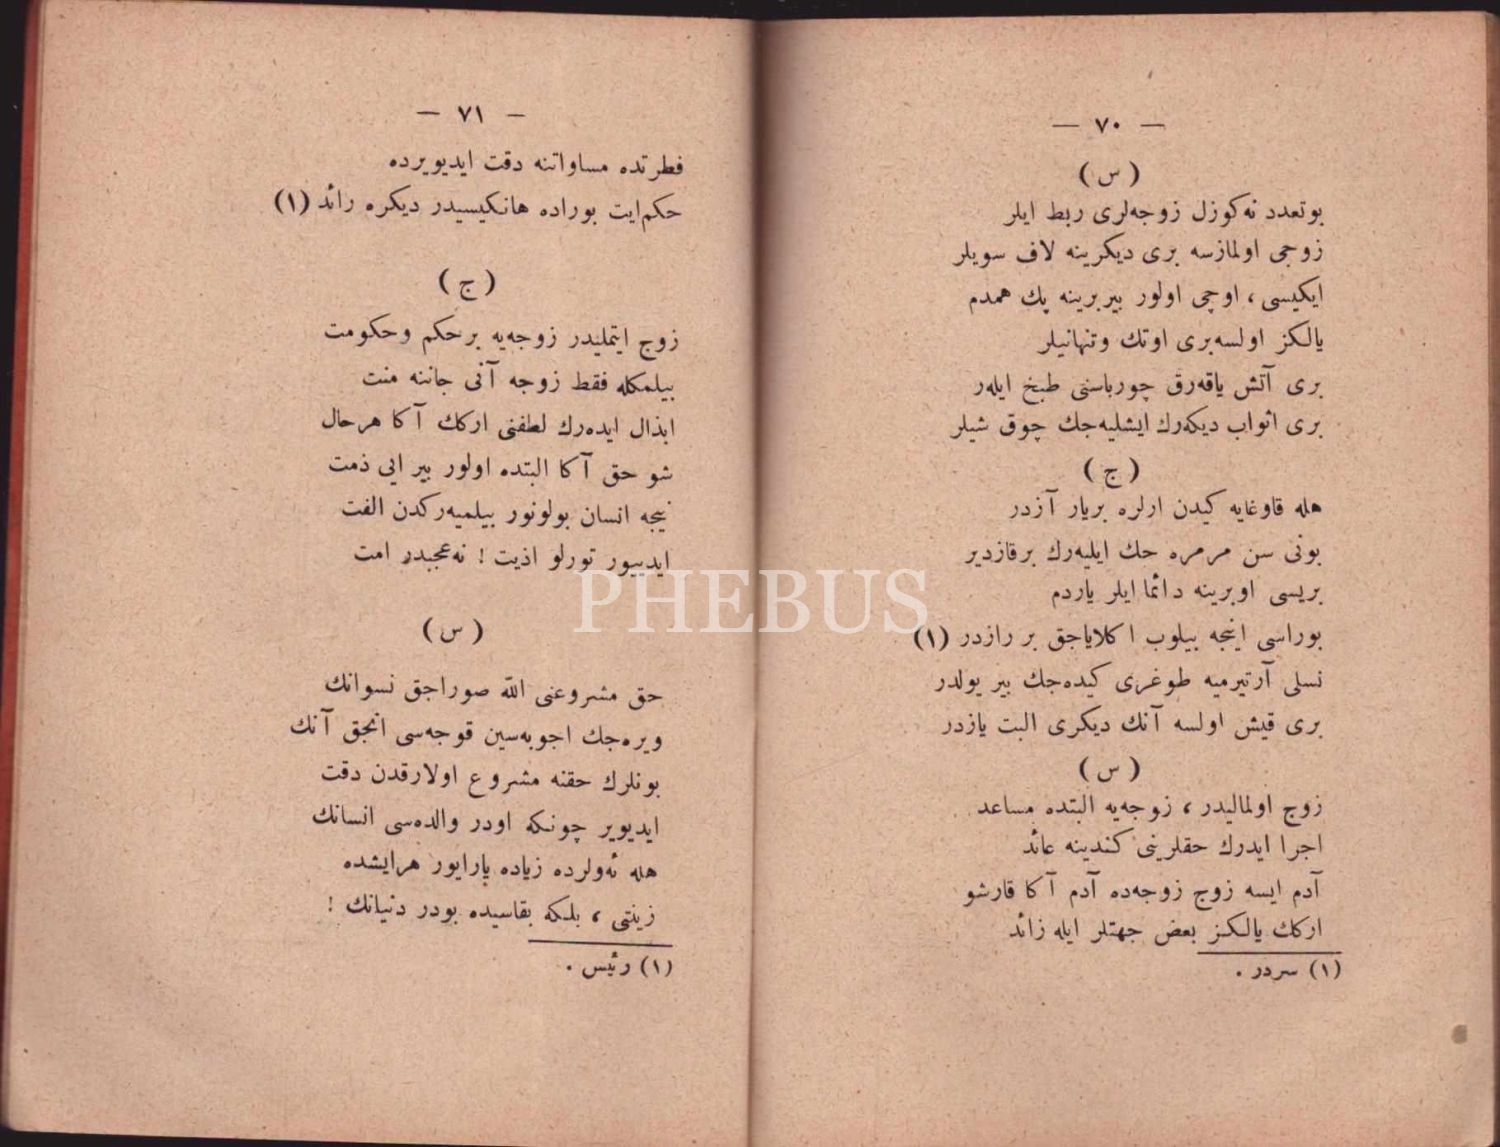 — ٧٠ —
( س )
بو تعدد نه‌كوزل زوجه‌لرى ربط ايلر
زوجى اولمازسه برى ديكرينه لاف سويلر
ايكيسى ، اوچى اولور بيربرينه پك همدم
يالكز اولسه‌برى اوتك وتنهانيلر
برى آتش ياقه‌رق چورباسنى طبخ ايله‌ر
برى اثواب ديكه‌رك ايشليه‌جك چوق شيلر
( ج )
هله قاوغايه كيدن ارلره بريار آزدر
بونى سن مرمره حك ايليه‌رك برقازدير
بريسى اوبرينه دائما ايلر ياردم
بوراسى اينجه بيلوب اكلاياجق بر رازدر (١)
نسلى آرتيرميه طوغرى كيده‌جك بير يولدر
برى قيش اولسه آنك ديكرى البت يازدر
( س )
زوج اولماليدر ، زوجه‌يه البتده مساعد
اجرا ايدرك حقلرينى كندينه عائد
آدم ايسه زوج زوجه‌ده آدم آكا قارشو
اركك يالكز بعض جهتلر ايله زائد
(١) سردر .
— ٧١ —
فطرتده مساواتنه دقت ايديويرده
حكم‌ايت بوراده هانكيسيدر ديكره رائد (١)
( ج )
زوج ايتمليدر زوجه‌يه برحكم وحكومت
بيلمكله فقط زوجه آنى جاننه منت
ابذال ايده‌رك لطفنى اركك آكا هرحال
شو حق آكا البتده اولور بير ايى ذمت
نيجه انسان بولونور بيلميه‌ركدن الفت
ايدييور تورلو اذيت ! نه‌عجبدر امت
( س )
حق مشروعنى الله صوراجق نسوانك
ويره‌جك اجوبه‌سين قوجه‌سى انجق آنك
بونلرك حقنه مشروع اولارقدن دقت
ايديوير چونكه اودر والده‌سى انسانك
هله ئه‌ولرده زياده يارايور هرايشده
زينتى ، بلكه بقاسيده بودر دنيانك !
(١) رئيس .
PHEBUS